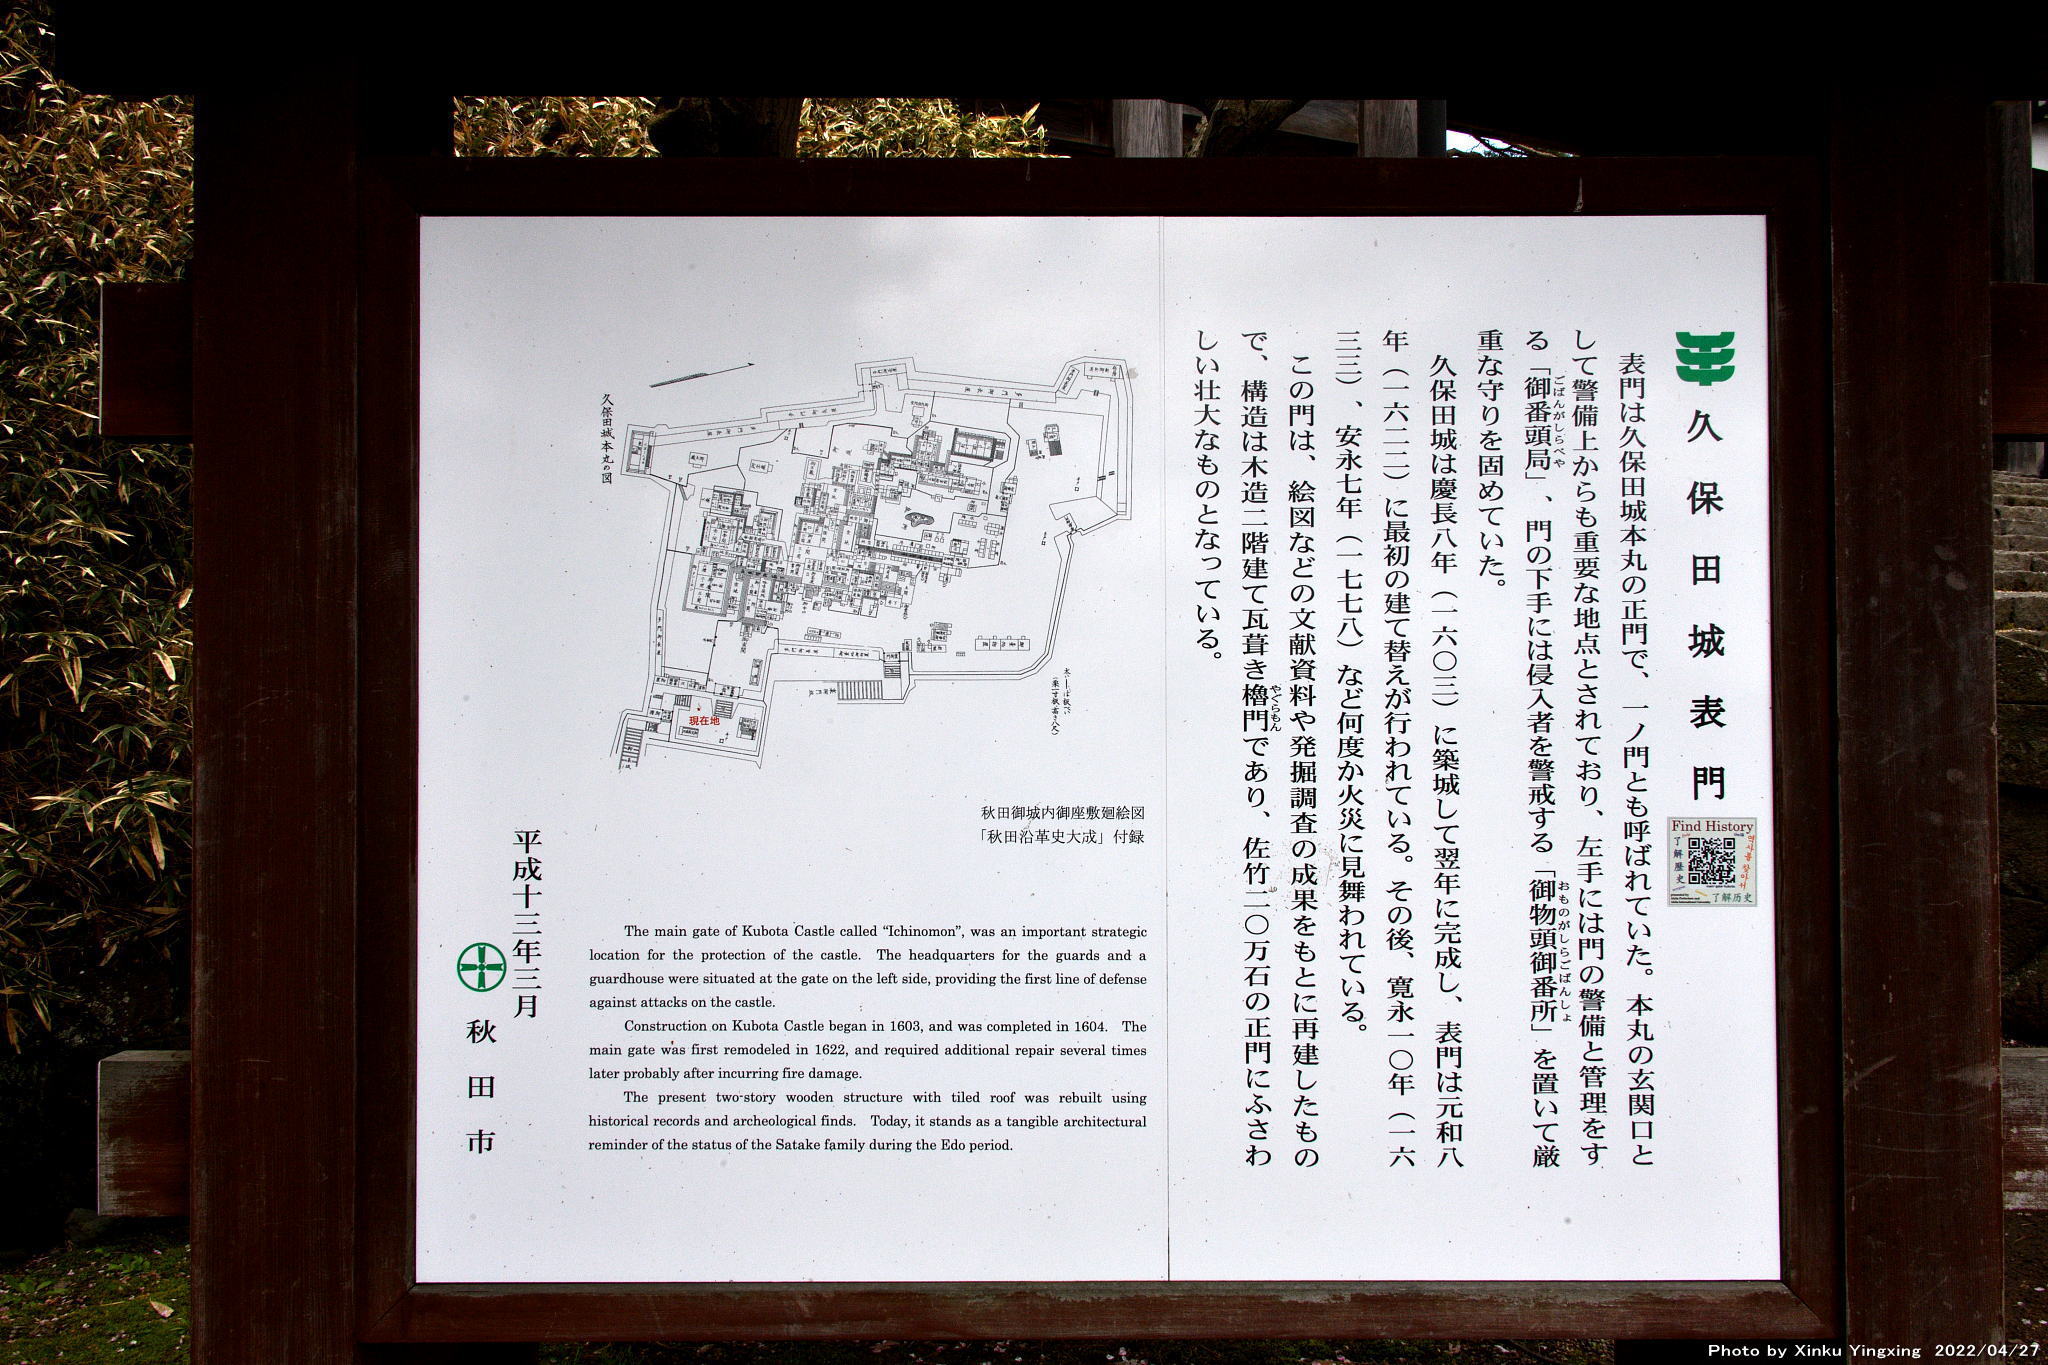 久保田城表門
表門は久保田城本丸の正門で、一ノ門とも呼ばれていた。本丸の玄関口と
して警備上からも重要な地点とされており、左手には門の警備と管理をす
る「御番頭局」、門の下手には侵入者を警戒する「御物頭御番所」を置いて厳
ごばんがしらべや
おものがしらごばんしょ
重な守りを固めていた。
久保田城は慶長八年（一六〇三）に築城して翌年に完成し、表門は元和八
年（一六二二）に最初の建て替えが行われている。その後、寛永一〇年（一六
三三）、安永七年（一七七八）など何度か火災に見舞われている。
この門は、絵図などの文献資料や発掘調査の成果をもとに再建したもの
で、構造は木造二階建て瓦葺き櫓門であり、佐竹二〇万石の正門にふさわ
やぐらもん
しい壮大なものとなっている。
Find History
了解歴史
역사를 찾아서
了解历史
久保田城本丸の図
現在地
秋田御城内御座敷廻絵図
「秋田沿革史大成」付録
The main gate of Kubota Castle called “Ichinomon”, was an important strategic
location for the protection of the castle. The headquarters for the guards and a
guardhouse were situated at the gate on the left side, providing the first line of defense
against attacks on the castle.
Construction on Kubota Castle began in 1603, and was completed in 1604. The
main gate was first remodeled in 1622, and required additional repair several times
later probably after incurring fire damage.
The present two-story wooden structure with tiled roof was rebuilt using
historical records and archeological finds. Today, it stands as a tangible architectural
reminder of the status of the Satake family during the Edo period.
平成十三年三月
秋田市
Photo by Xinku Yingxing 2022/04/27